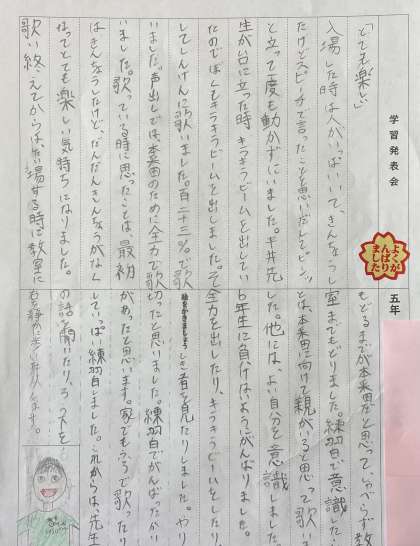 学習発表会
五年
よくがんばりました
「とても楽しい」
入場した時は人がいっぱいいて、きんちょうし
たけどスピーチで言ったことを思いだしてピシッ
と立って一度も動かずにいました。井先
生が台に立った時、キラキラビームを出してい
たのでぼくもキラキラビームを出しました。そ
してしんけんに歌いました。百二十三%で歌
いました。声出しでは本番のために全力で歌
いました。歌っている時に思ったことは、最初
はきんちょうしたけど、だんだんきんちょうがなく
なってとても楽しい気持ちになりました。
歌い終えてからは、たい場する時に教室に
もどるまでが本番だと思ってしゃべらず教
室までもどりました。練習で意識した
とは、本番に向けて親がいると思って歌いま
した。他には、よい自分を意識しました。
6年生に負けないようにがんばりました。
全力を出したり、キラキラビームをしたり、
絵をかきましょう
しき者を見たりしました。やり
切ったと思いました。練習でがんばったかい
があったと思います。家でもふろで歌ったり
していっぱい練習しました。これからは、先生
の話を聞いたり、ろう下を
右を静かに歩いたりします。